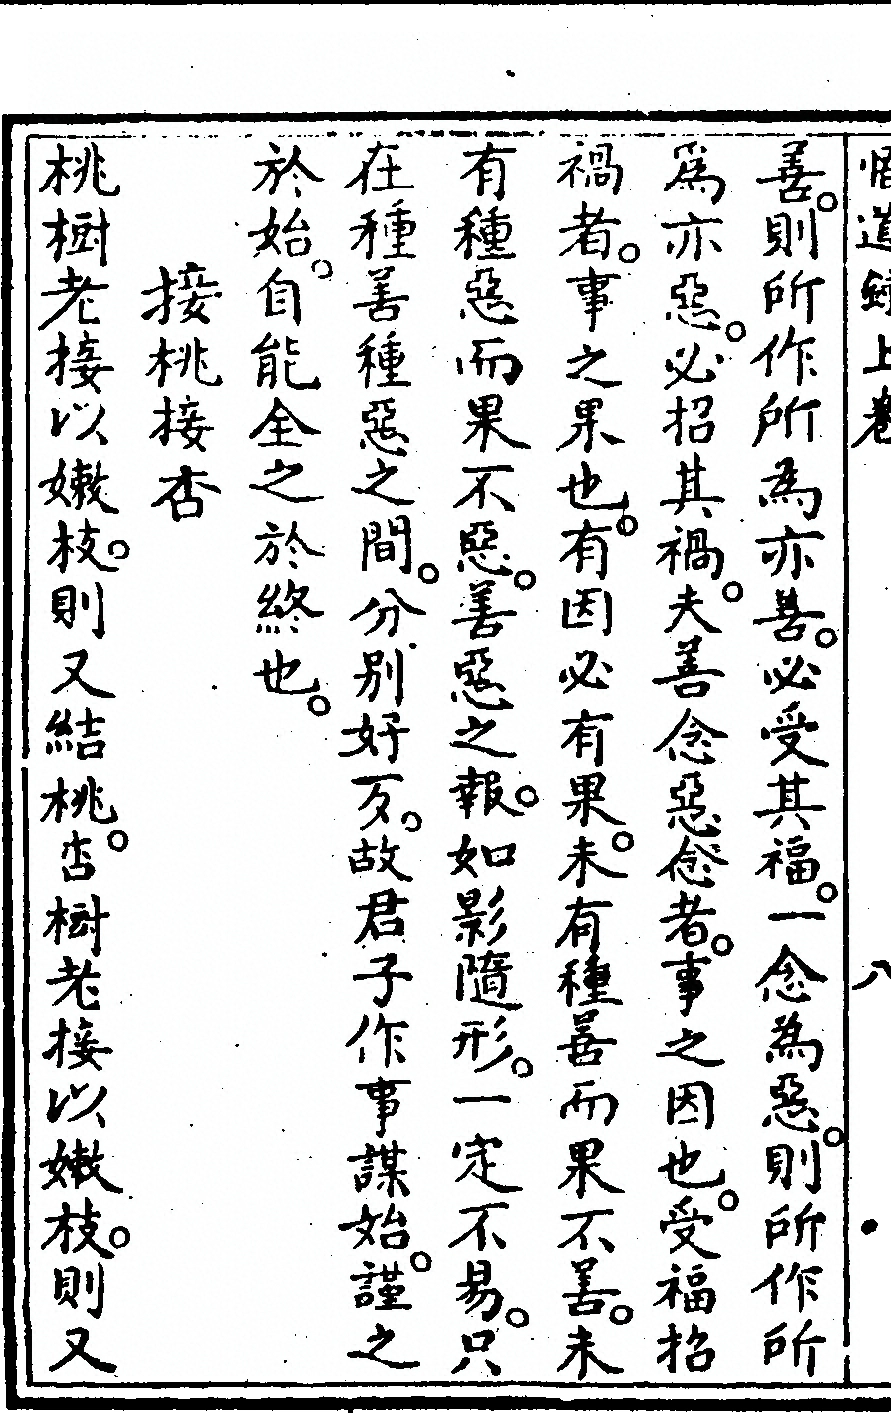 悟道錄上卷 八
善。則所作所為亦善。必受其福。一念為惡。則所作所
爲亦惡。必招其禍。夫善念惡念者。事之因也。受福招
禍者。事之果也。有因必有果。未有種善而果不善。未
有種惡而果不惡。善惡之報。如影隨形。一定不易。只
在種善種惡之間。分別好歹。故君子作事謀始。謹之
於始。自能全之於終也。
接桃接杏
桃樹老接以嫩枝。則又結桃。杏樹老接以嫩枝。則又